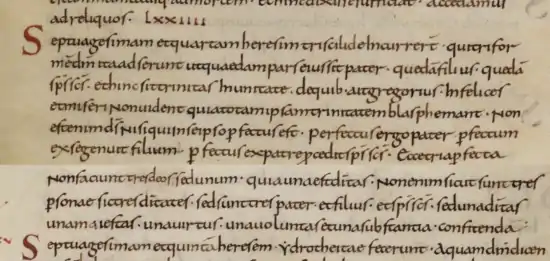 ad reliquos · Lxxiiii
Septuagesimam et quartam heresim triscilide Incurrer̄t · qui trifor
mēdm̄ ita adserunt ut quaedam pars eius sit pater · quedā filius · quedā
sp̄s sc̄s · et hinc sit trinitas In unitate · de quib· ait gregorius · Infelices
et miseri Non vident quia totam ipsam trinitatem blasphemant · Non
est enim dn̄s Nisi qui in se ipso p̄fectus est · Perfectus ergo pater p̄fectum
ex se genuit filium p̄fectus ex patre p̄cedit sp̄s sc̄s · Ecce tria p̄fecta
Non faciunt tres deos sed unum · quia una est diītas · Non enim sicut sunt tres
p̄sonae sic tres diītates · sed sunt tres pater et filius · et sp̄s sc̄s · sed una diītas
una maiestas · una virtus · una voluntas et una substantia · confitenda
Septuagesimam et quintā heresem · ydrotheitae fecerunt · Aquam dm̄ dicen